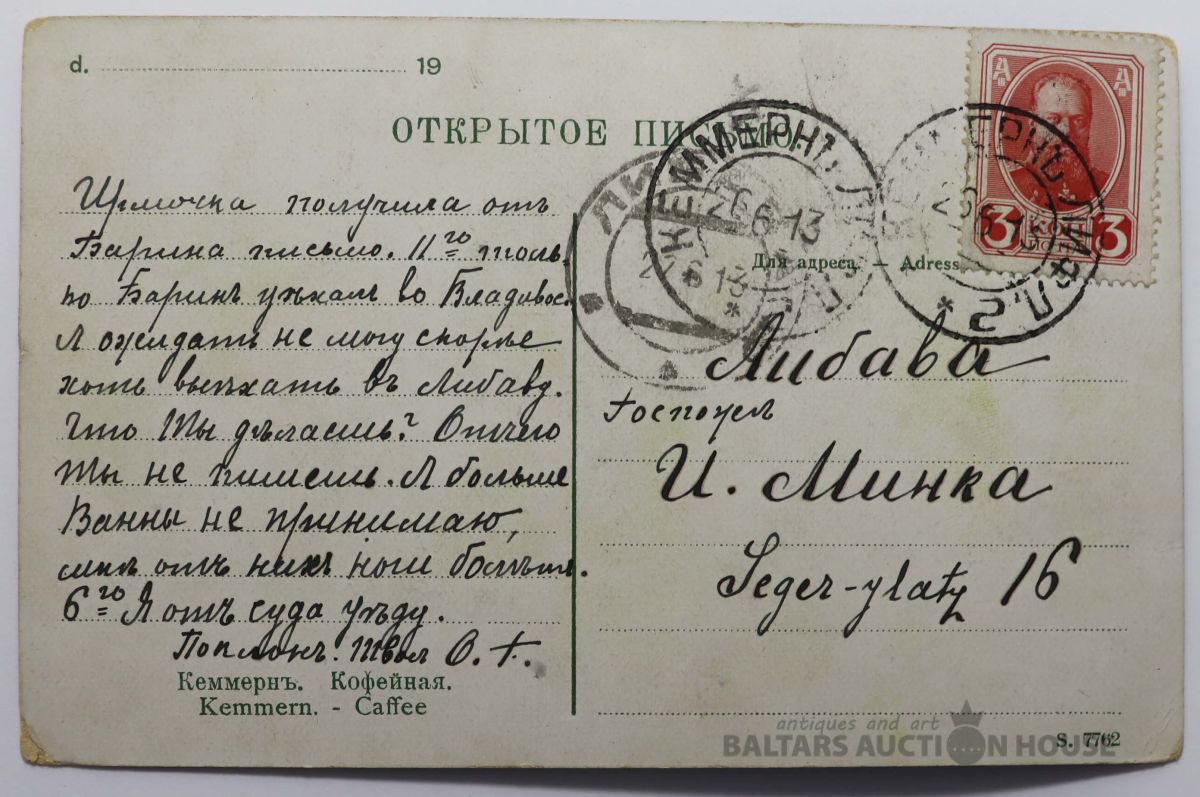 d. 19
ОТКРЫТОЕ ПИСЬМО.
Ирмочка получила отъ
Барина письмо. 11го толь-
ко Баринъ уѣхалъ во Владивос.
Я ожидать не могу скорѣе
хоть выѣхать въ Либаву.
Что Ты дѣлаешь? Отчего
Ты не пишешь. Я больше
Ванны не принимаю,
отъ нихъ ноги
6го Я отъ суда уѣду.
Твоя О. Г.
Кеммернъ. Кофейная.
Kemmern. - Caffee
КЕММЕРНЪ ЛИФЛ. Г.
26 6 13
КЕММЕРНЪ ЛИФЛ. Г.
26 6 13
ЛИ
6 13
3 КОП 3
Для адреса. — Adress
Либава
Госпожа
И. Минка
Seger-platz 16
S. 7762
antiques and art
BALTARS AUCTION HOUSE